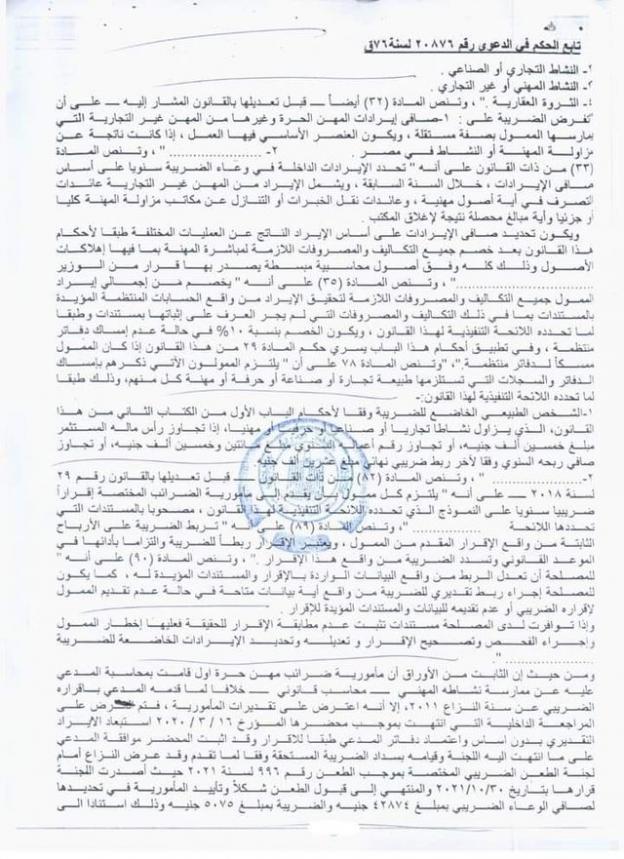 تابع الحكم في الدعوى رقم ٢٠٨٧٦ لسنة ٧٦ق
٢- النشاط التجاري أو الصناعي .
٣- النشاط المهني أو غير التجاري .
٤- الثروة العقارية ." ، وتنص المادة (٣٢) أيضاً ــــ قبل تعديلها بالقانون المشار إليه ــــ على أن
"تفرض الضريبة على : ١-صافى إيرادات المهن الحرة وغيرها من المهن غير التجارية التي
يمارسها الممول بصفة مستقلة ، ويكون العنصر الأساسي فيها العمل ، إذا كانت ناتجة عن
مزاولة المهنة أو النشاط في مصر . ٢- .................... " ، وتنص المادة
(٣٣) من ذات القانون على أنه " تحدد الإيرادات الداخلة في وعاء الضريبة سنويا على أساس
صافى الإيرادات ، خلال السنة السابقة ، ويشمل الإيراد من المهن غير التجارية عائدات
التصرف في أية أصول مهنية ، وعائدات نقل الخبرات أو التنازل عن مكاتب مزاولة المهنة كليا
أو جزئيا وأية مبالغ محصلة نتيجة لإغلاق المكتب .
ويكون تحديد صافى الإيرادات على أساس الإيراد الناتج عن العمليات المختلفة طبقا لأحكام
هذا القانون بعد خصم جميع التكاليف والمصروفات اللازمة لمباشرة المهنة بما فيها إهلاكات
الأصول وذلك كله وفق أصول محاسبية مبسطة يصدر بها قرار من الوزير
.................." ، وتنص المادة (٣٥) على أنه " يخصم من إجمالي إيراد
الممول جميع التكاليف والمصروفات اللازمة لتحقيق الإيراد من واقع الحسابات المنتظمة المؤيدة
بالمستندات بما في ذلك التكاليف والمصروفات التي لم يجر العرف على إثباتها بمستندات وطبقا
لما تحدده اللائحة التنفيذية لهذا القانون ، ويكون الخصم بنسبة ١٠% في حالة عدم إمساك دفاتر
منتظمة ، وفى تطبيق أحكام هذا الباب يسري حكم المادة ٢٩ من هذا القانون إذا كان الممول
ممسكاً لدفاتر منتظمة."،"وتنص المادة ٧٨ على أن " يلتزم الممولون الأتي ذكرهم بإمساك
الدفاتر والسجلات التي تستلزمها طبيعة تجارة أو صناعة أو حرفة أو مهنة كل منهم، وذلك طبقا
لما تحدده اللائحة التنفيذية لهذا القانون:-
١-الشخص الطبيعي الخاضع للضريبة وفقا لأحكام الباب الأول من الكتاب الثاني من هذا
القانون، الذي يزاول نشاطا تجاريا أو صناعيا أو حرفيا أو مهنيا، إذا تجاوز رأس ماله المستثمر
مبلغ خمسين ألف جنيه، أو تجاوز رقم أعماله السنوي مبلغ مائتين وخمسين ألف جنيه، أو تجاوز
صافي ربحه السنوي وفقا لآخر ربط ضريبي نهائي مبلغ عشرين ألف جنيه.
٢- ............." ، وتنص المادة (٨٢) من ذات القانون ــــ قبل تعديلها بالقانون رقم ٢٩
لسنة ٢٠١٨ ــــ على أنه " يلتزم كل ممول بأن يقدم إلى مأمورية الضرائب المختصة إقراراً
ضريبيا سنويا على النموذج الذي تحدده اللائحة التنفيذية لهذا القانون ، مصحوبا بالمستندات التي
تحددها اللائحة .................. "، وتنص المادة (٨٩) على أنه " تربط الضريبة على الأرباح
الثابتة من واقع الإقرار المقدم من الممول ، ويعتبر الإقرار ربطاً للضريبة والتزاما بأدائها في
الموعد القانوني وتسدد الضريبة من واقع هذا الإقرار ." ، وتنص المادة (٩٠) على أنه "
للمصلحة أن تعدل الربط من واقع البيانات الواردة بالإقرار والمستندات المؤيدة له ، كما يكون
للمصلحة إجراء ربط تقديري للضريبة من واقع أية بيانات متاحة في حالة عدم تقديم الممول
لاقراره الضريبي أو عدم تقديمه للبيانات والمستندات المؤيدة للإقرار .
وإذا توافرت لدى المصلحة مستندات تثبت عدم مطابقة الإقرار للحقيقة فعليها إخطار الممول
وإجراء الفحص وتصحيح الإقرار و تعديله وتحديد الإيرادات الخاضعة للضريبة
.................. "
ومن حيث إن الثابت من الأوراق أن مأمورية ضرائب مهن حرة أول قامت بمحاسبة المدعي
عليه عن ممارسة نشاطه المهني ــــ محاسب قانوني ــــ خلافا لما قدمه المدعي باقراره
الضريبي عن سنة النزاع ٢٠١١، إلا أنه اعترض على تقديرات المأمورية ، فتم عرض على
المراجعة الداخلية التي انتهت بموجب محضرها المؤرخ ١٦ / ٣ / ٢٠٢٠ استبعاد الايراد
التقديري بدون اساس واعتماد دفاتر المدعي طبقا للاقرار وقد اثبت المحضر موافقة المدعي
على ما انتهت اليه اللجنة وقيامه بسداد الضريبة المستحقة وفقا لما تقدم وقد عرض النزاع أمام
لجنة الطعن الضريبي المختصة بموجب الطعن رقم ٩٩٦ لسنة ٢٠٢١ حيث أصدرت اللجنة
قرارها بتاريخ ٢٠٢١/١٠/٣٠ والمنتهي إلى قبول الطعن شكلاً وتأييد المأمورية في تحديدها
لصافي الوعاء الضريبي بمبلغ ٤٢٨٧٤ جنيه والضريبة بمبلغ ٥٠٧٥ جنيه وذلك استنادا الى